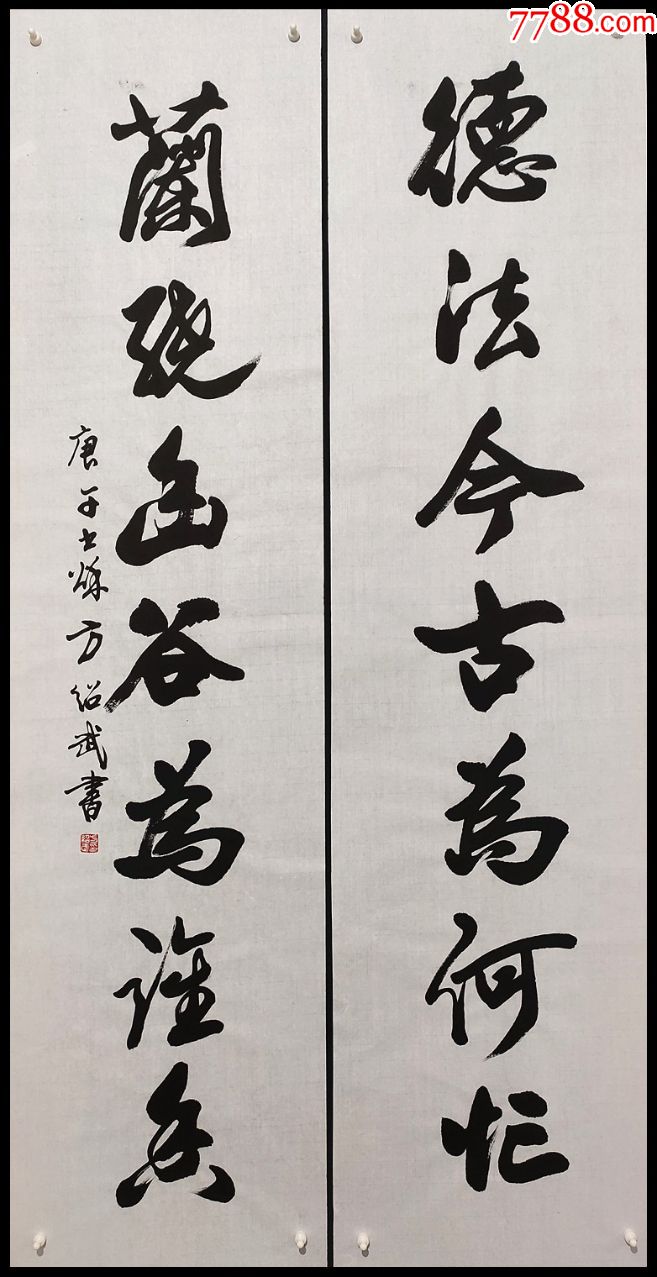 7788.com
德法今古為何忙
蘭繞幽谷為誰香
庚子大烁方绍武書